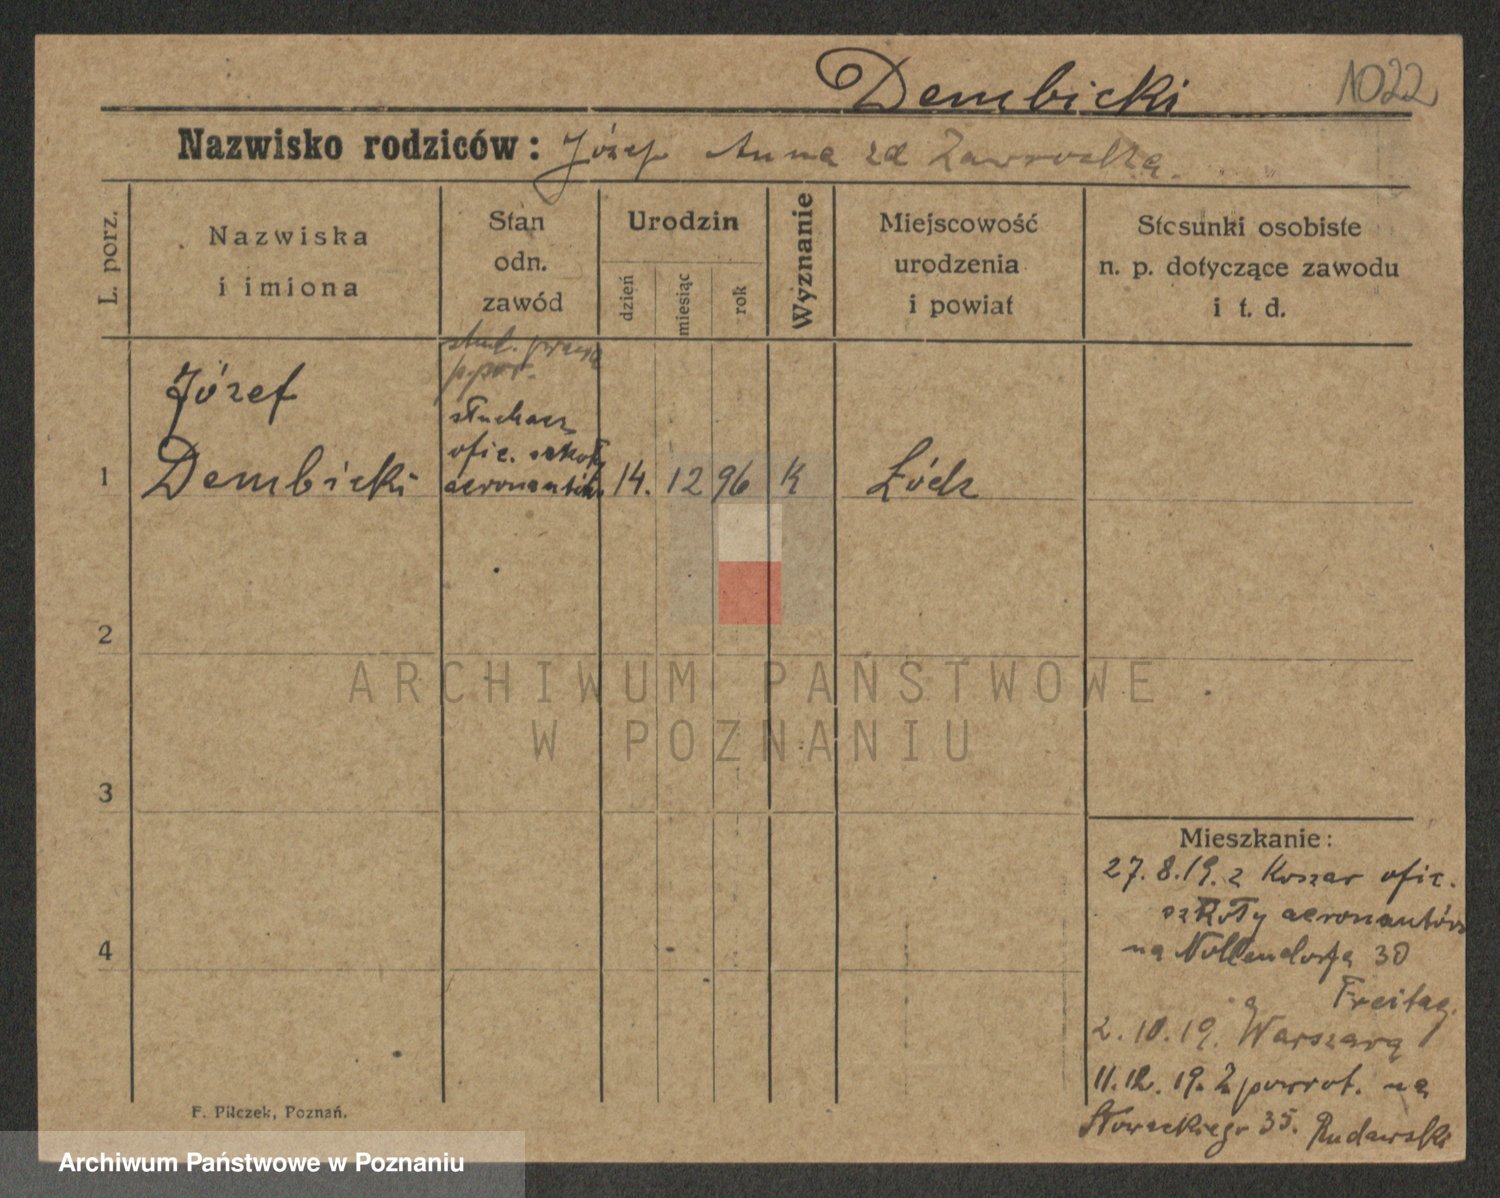 Dembicki 1022
Nazwisko rodziców: Józef Anna zd Zawrocką.
L. porz.
Nazwiska i imiona
Stan odn. zawód
Urodzin
dzień
miesiąc
rok
Wyznanie
Miejscowość urodzenia i powiat
Stosunki osobiste n. p. dotyczące zawodu i t. d.
stud. prawa
p.por.
Józef
słuchacz
ofic. szkoły
1 Dembicki aeronautów 14. 12 96 K Łódz
2
3
4
ARCHIWUM PAŃSTWOWE
W POZNANIU
Mieszkanie:
27.8.19. z Koszar ofic.
szkoły aeronautów
na Nollendorfa 30
Freitag.
2.10.19. Warszawą
11.12.19. Z powrot. na
Słowackiego 35. Rudawski
F. Pilczek, Poznań.
Archiwum Państwowe w Poznaniu